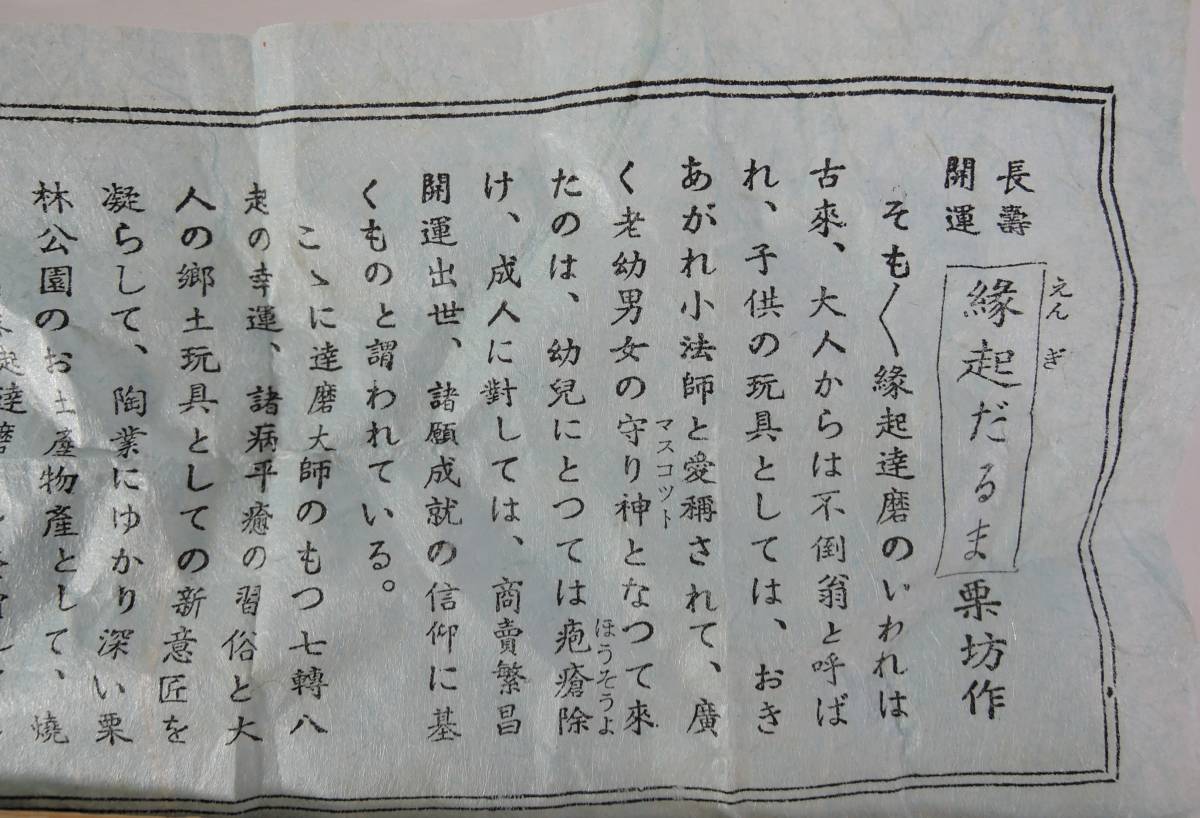 長壽
開運
縁起だるま 栗坊作
えんぎ
そも〱縁起達磨のいわれは
古來、大人からは不倒翁と呼ば
れ、子供の玩具としては、おき
あがれ小法師と愛稱されて、廣
く老幼男女の守り神となつて來
マスコット
たのは、幼兒にとつては疱瘡除
ほうそうよ
け、成人に對しては、商賣繁昌
開運出世、諸願成就の信仰に基
くものと謂われている。
こゝに達磨大師のもつ七轉八
起の幸運、諸病平癒の習俗と大
人の郷土玩具としての新意匠を
凝らして、陶業にゆかり深い栗
林公園のお土産物産として、燒
起達磨